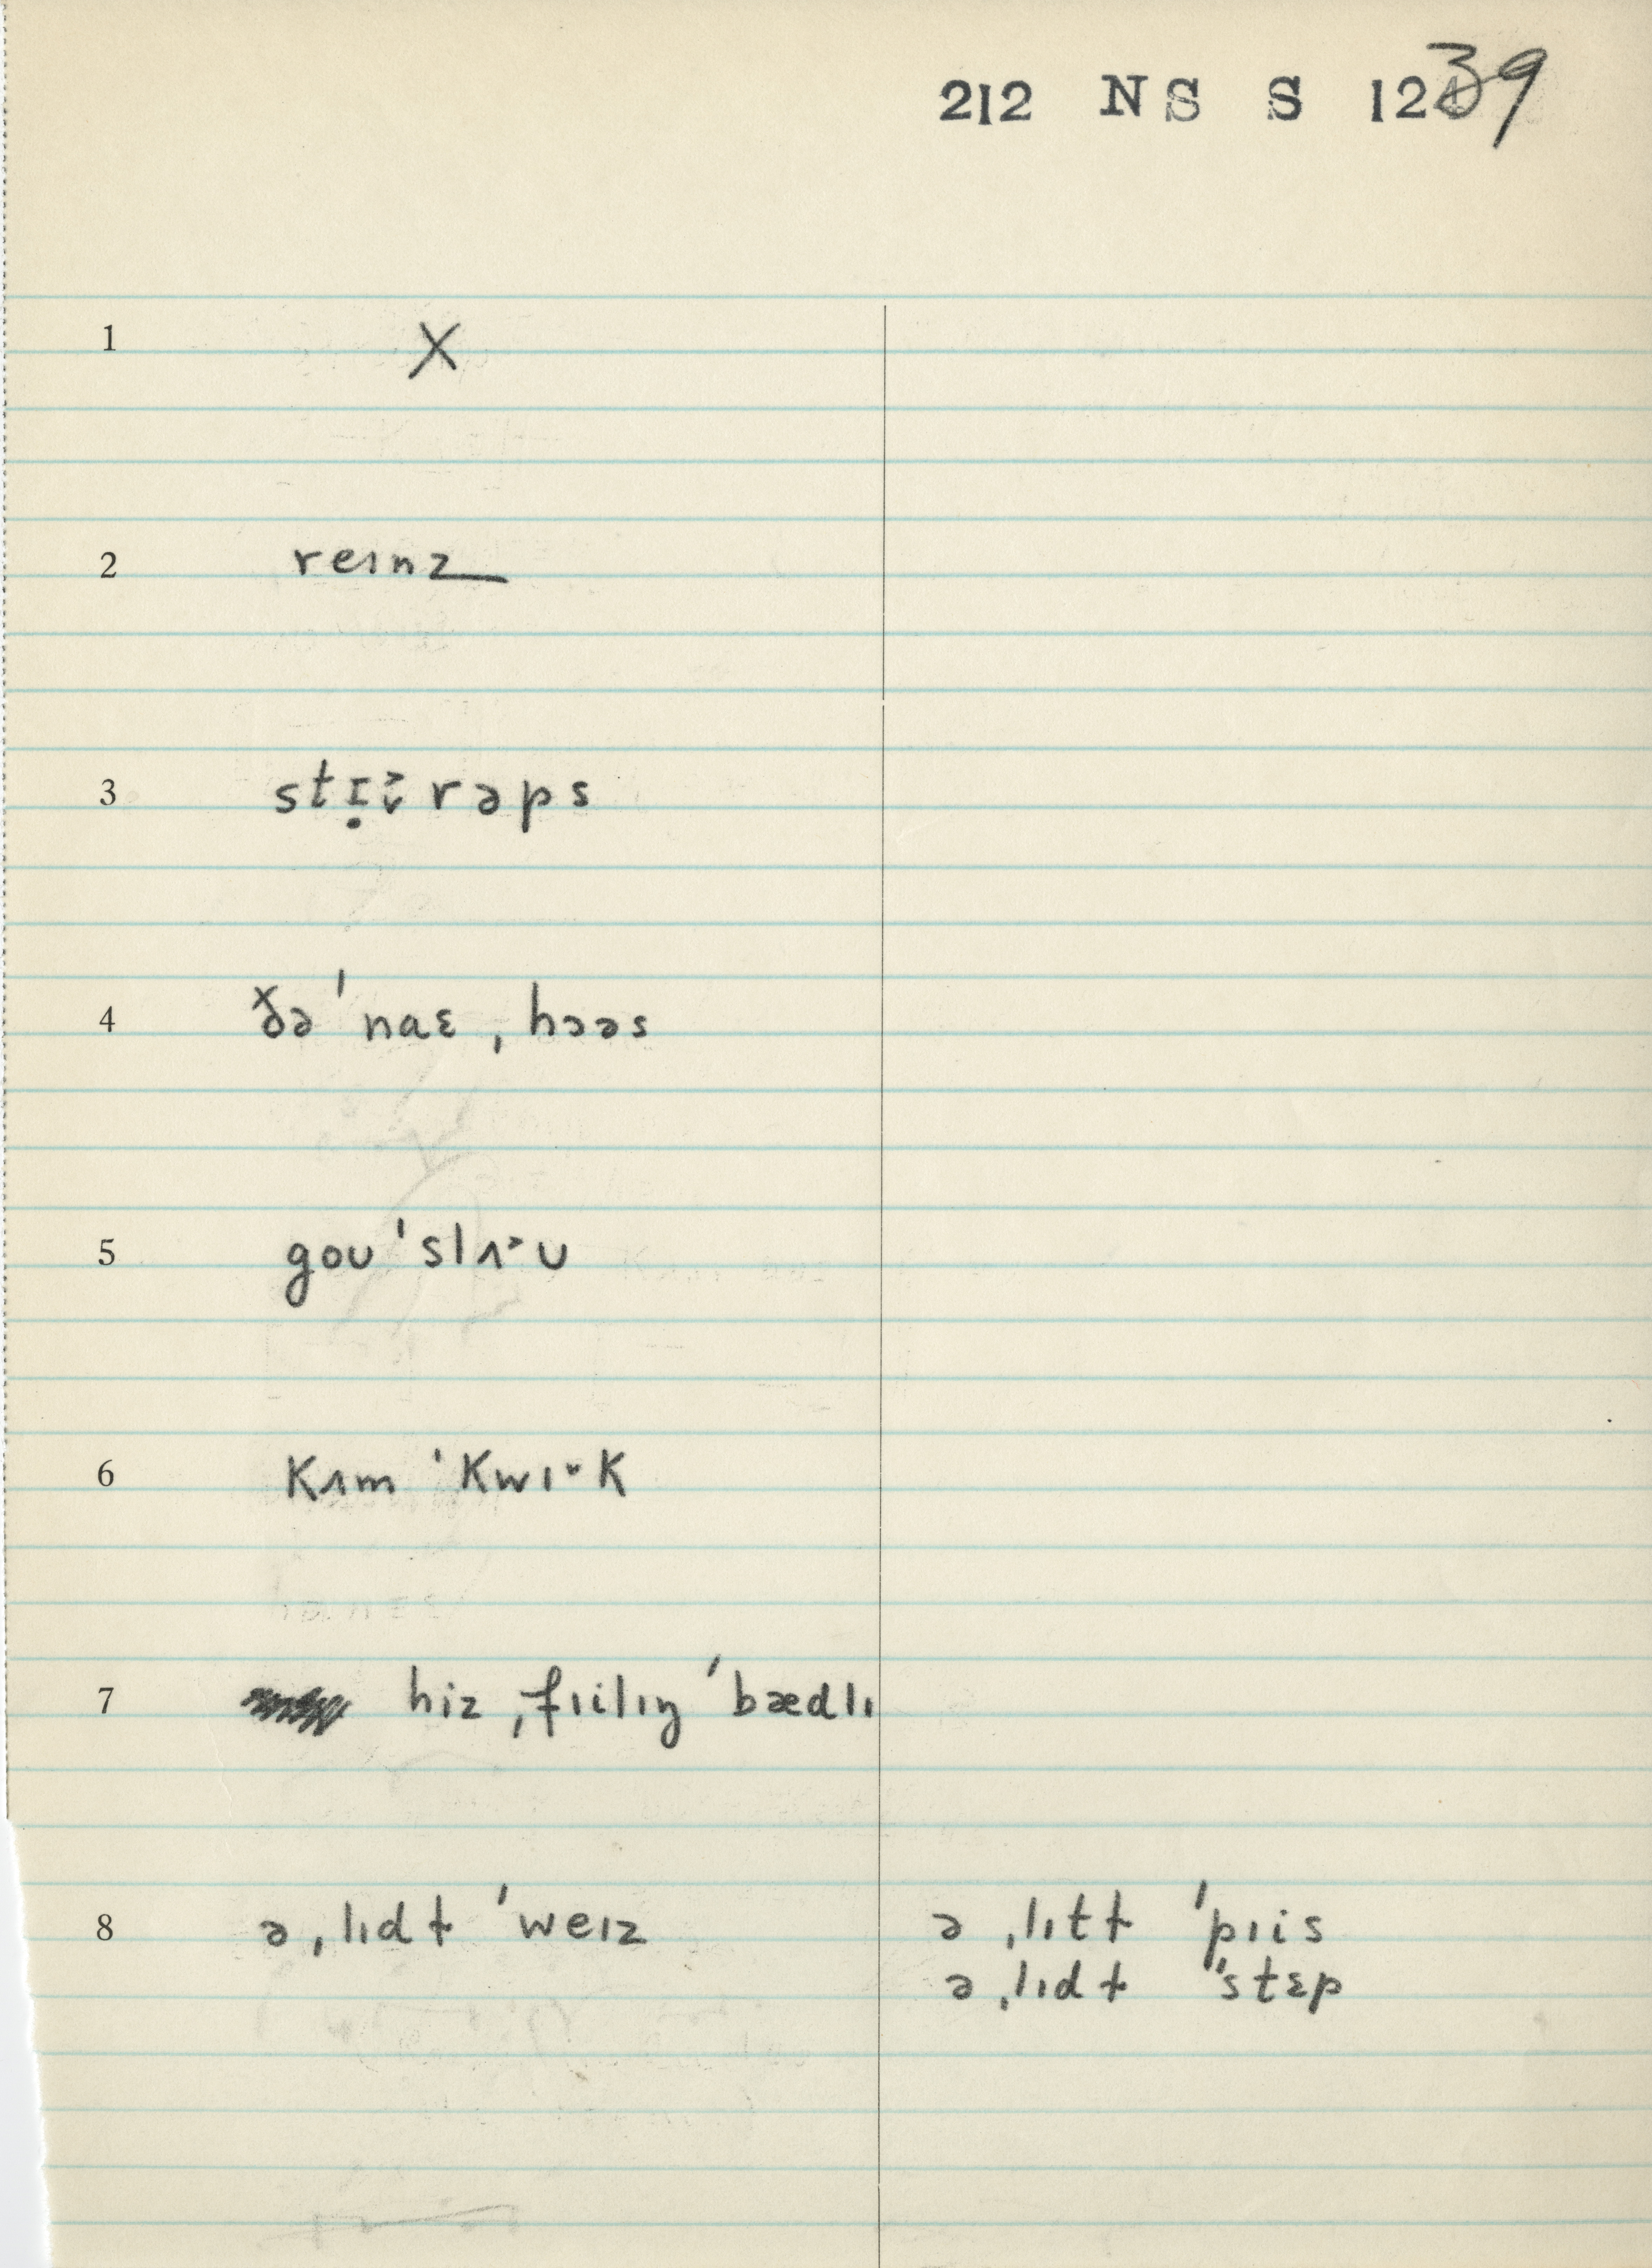 212 NS S 1239
1 X
2 reɪnz
3 stɪ̣ɨ̌rəps
4 ðə ˈnaɛ ˌhɔəs
5 goʊ ˈslʌ˃ʊ
6 kʌm ˈkwɪ˘k
7 hiz ˌfɪilɪŋ ˈbædlɪ
8 ə ˌlɪdɫ ˈweɪz ə ˌlɪtɫ ˈpɪis
ə ˌlɪdɫ ˈstɛp